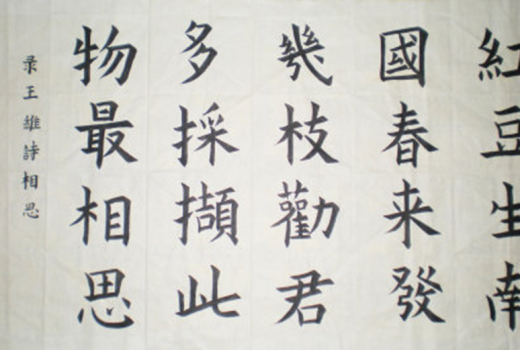 紅豆生南
國春来發
幾枝勸君
多採擷此
物最相思
录王維詩相思